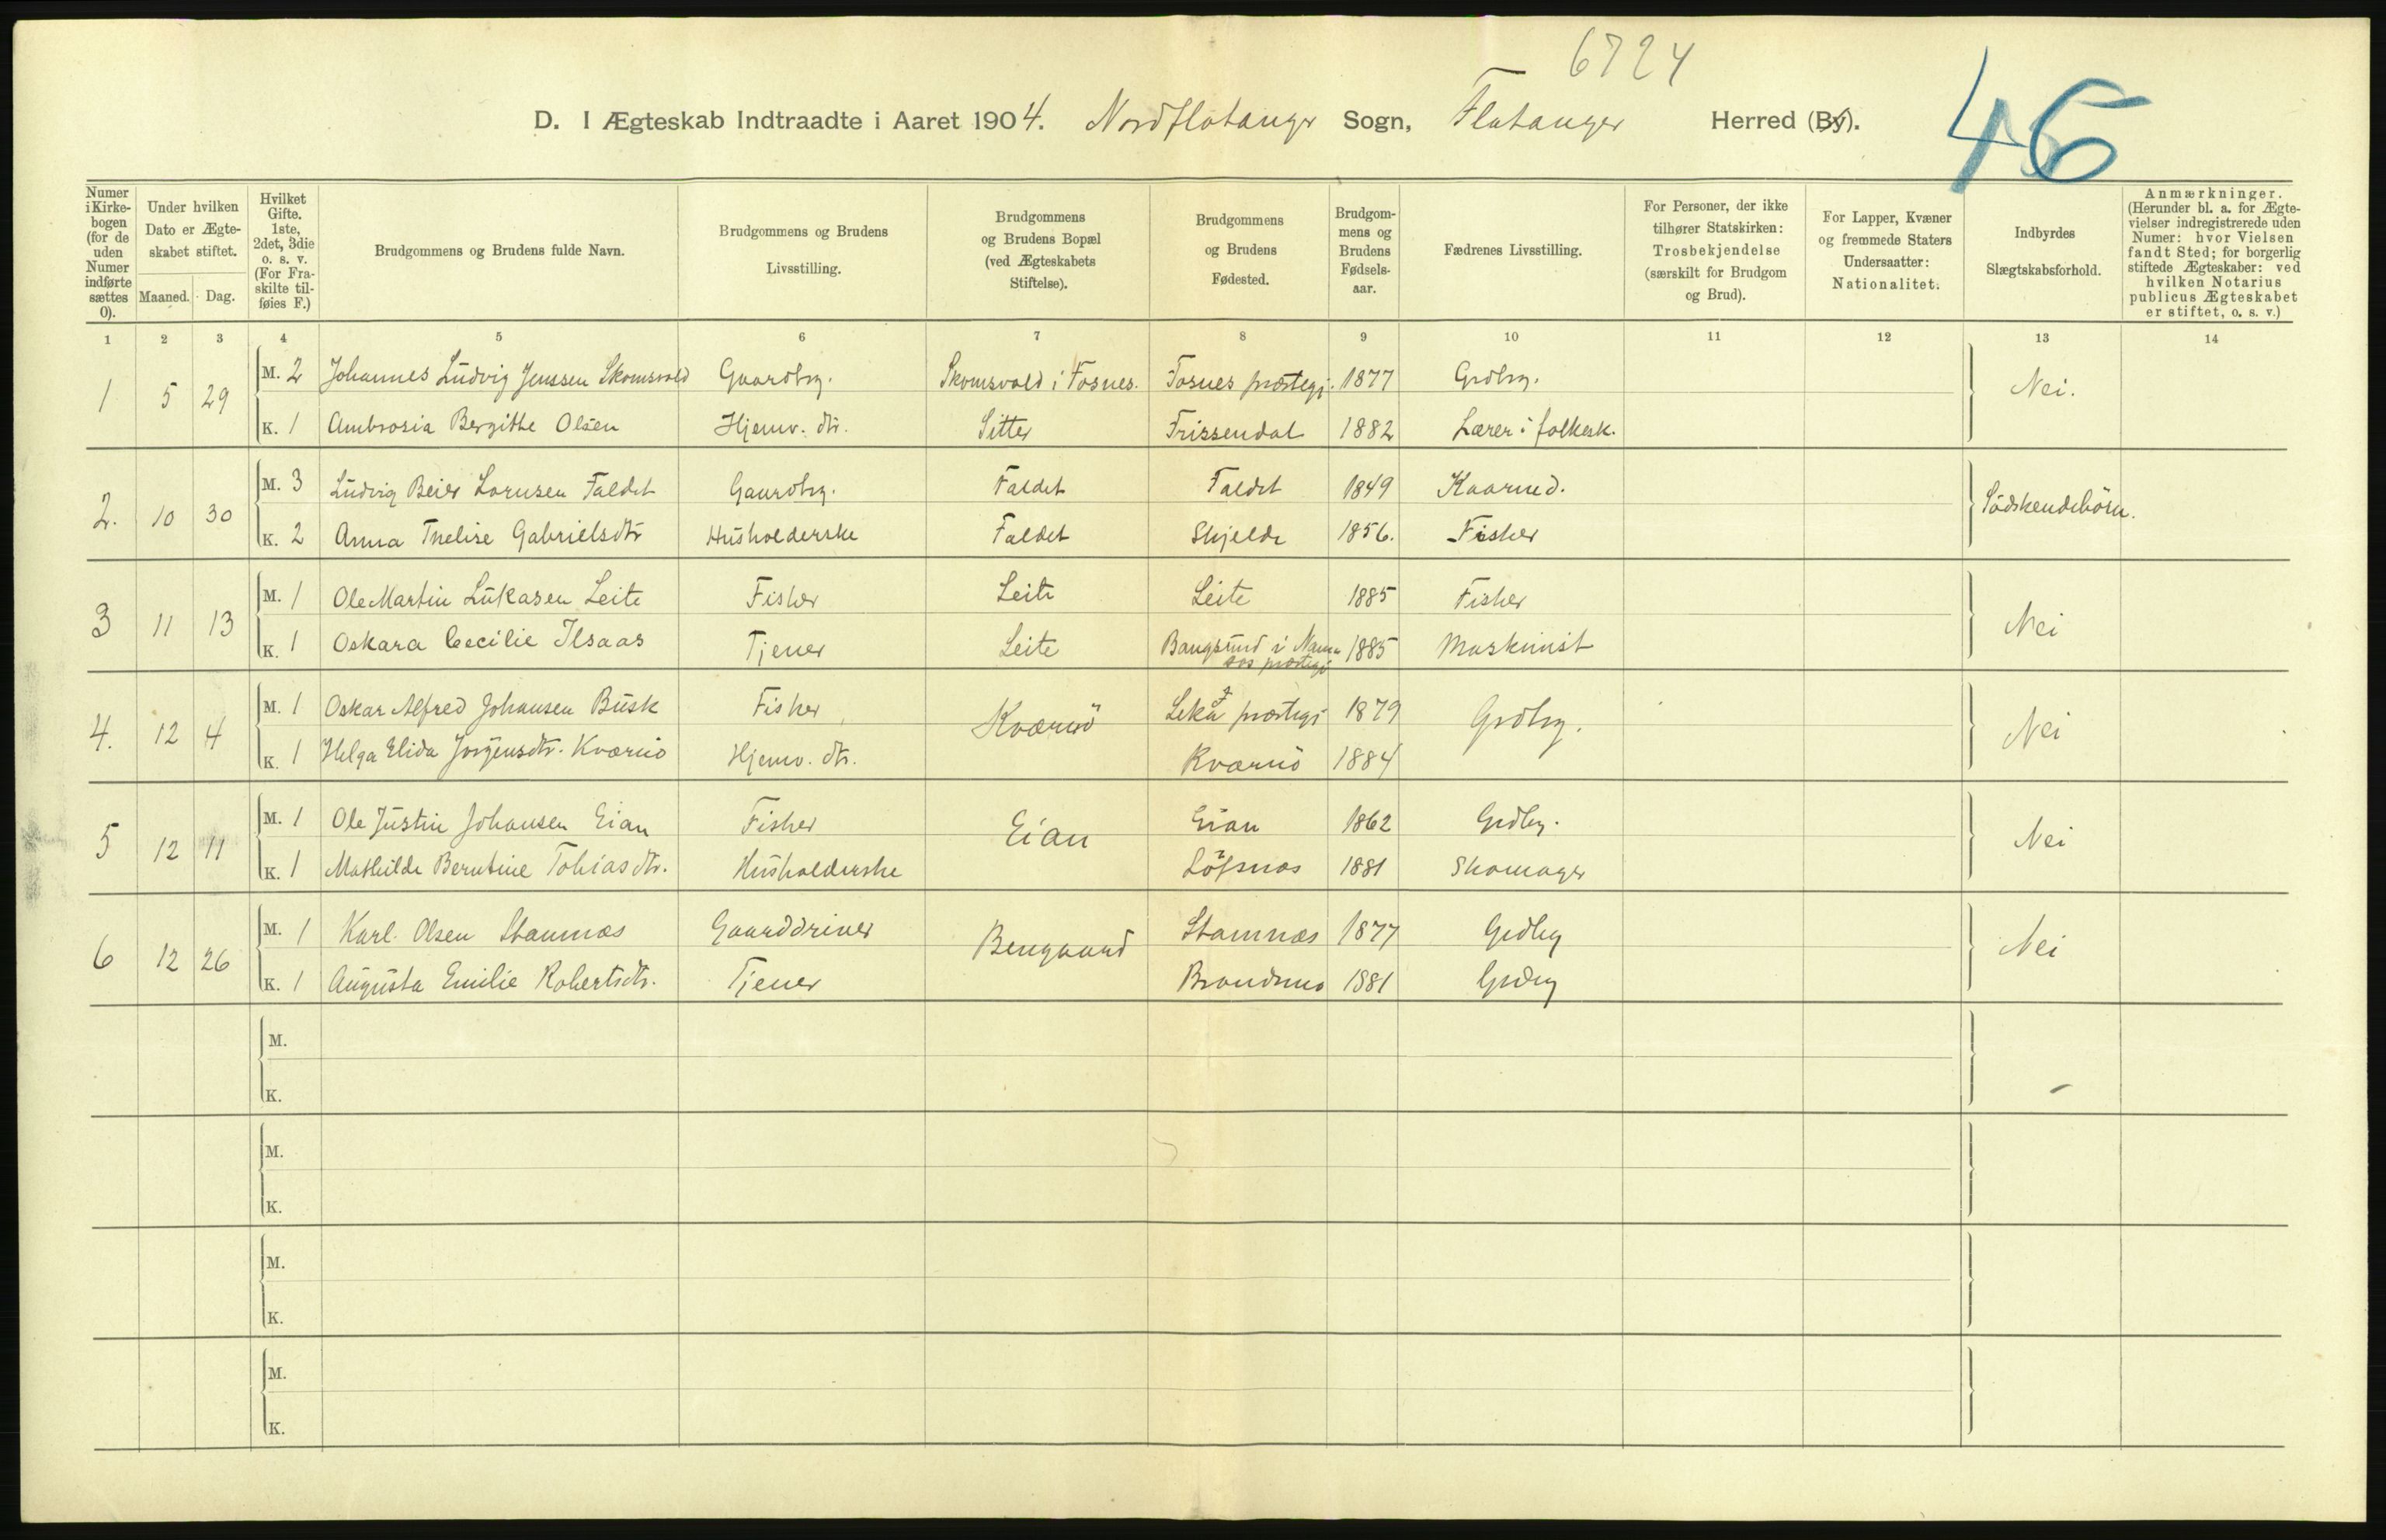 6724
D. I Ægteskab Indtraadte i Aaret 1904. Nordflatanger Sogn, Flatanger Herred (By).
46
Numer i Kirke-bogen (for de uden Numer indførte sættes 0).
Under hvilken Dato er Ægte-skabet stiftet.
Maaned. Dag.
Hvilket Gifte. 1ste, 2det, 3die o. s. v. (For Fra-skilte til-føies F.)
Brudgommens og Brudens fulde Navn.
Brudgommens og Brudens Livsstilling.
Brudgommens og Brudens Bopæl (ved Ægteskabets Stiftelse).
Brudgommens og Brudens Fødested.
Brudgom-mens og Brudens Fødsels-aar.
Fædrenes Livsstilling.
For Personer, der ikke tilhører Statskirken: Trosbekjendelse (særskilt for Brudgom og Brud).
For Lapper, Kvæner og fremmede Staters Undersaatter: Nationalitet.
Indbyrdes Slægtskabsforhold.
Anmærkninger. (Herunder bl. a. for Ægte-vielser indregistrerede uden Numer: hvor Vielsen fandt Sted; for borgerlig stiftede Ægteskaber: ved hvilken Notarius publicus Ægteskabet er stiftet, o. s. v.)
1 2 3 4 5 6 7 8 9 10 11 12 13 14
1 5 29 M. 2 Johannes Ludvig Jenssen Skomsvold Gaardbr. Skomsvold i Fosnes. Fosnes præstegj. 1877 Grdbr. Nei.
K. 1 Ambrosia Bergitte Olsen Hjemv. dtr. Sitter Frissendal 1882 Lærer i folkesk.
2. 10 30 M. 3 Ludvig Beier Lornsen Faldet Gaardbr. Faldet Faldet 1849 Kaarmd. Södskendebörn.
K. 2 Anna Thelise Gabrielsdtr Husholderske Faldet Skjelde 1856. Fisker
3 11 13 M. 1 Ole Martin Lukasen Leite Fisker Leite Leite 1885 Fisker Nei
K. 1 Oskara Cecilie Ilsaas Tjener Leite Bangsund i Nam- 1885 Maskinist
sos præstegj
4. 12 4 M. 1 Oskar Alfred Johansen Busk Fisker Kværnö Leka præstegj 1879 Grdbr. Nei
K. 1 Helga Elida Jörgensdtr. Kværnö Hjemv. dtr. Kværnö 1884
5 12 11 M. 1 Ole Justin Johansen Eian Fisker Eian Eian 1862 Grdbr. Nei
K. 1 Mathilde Berntine Tobiasdtr. Husholderske Löfsnæs 1881 Skomager
6 12 26 M. 1 Karl Olsen Stamnæs Gaarddriver Bengaard Stamnæs 1877 Grdbr Nei
K. 1 Augusta Emilie Robertsdtr. Tjener 1881 Grdbr
M.
K.
M.
K.
M.
K.
M.
K.